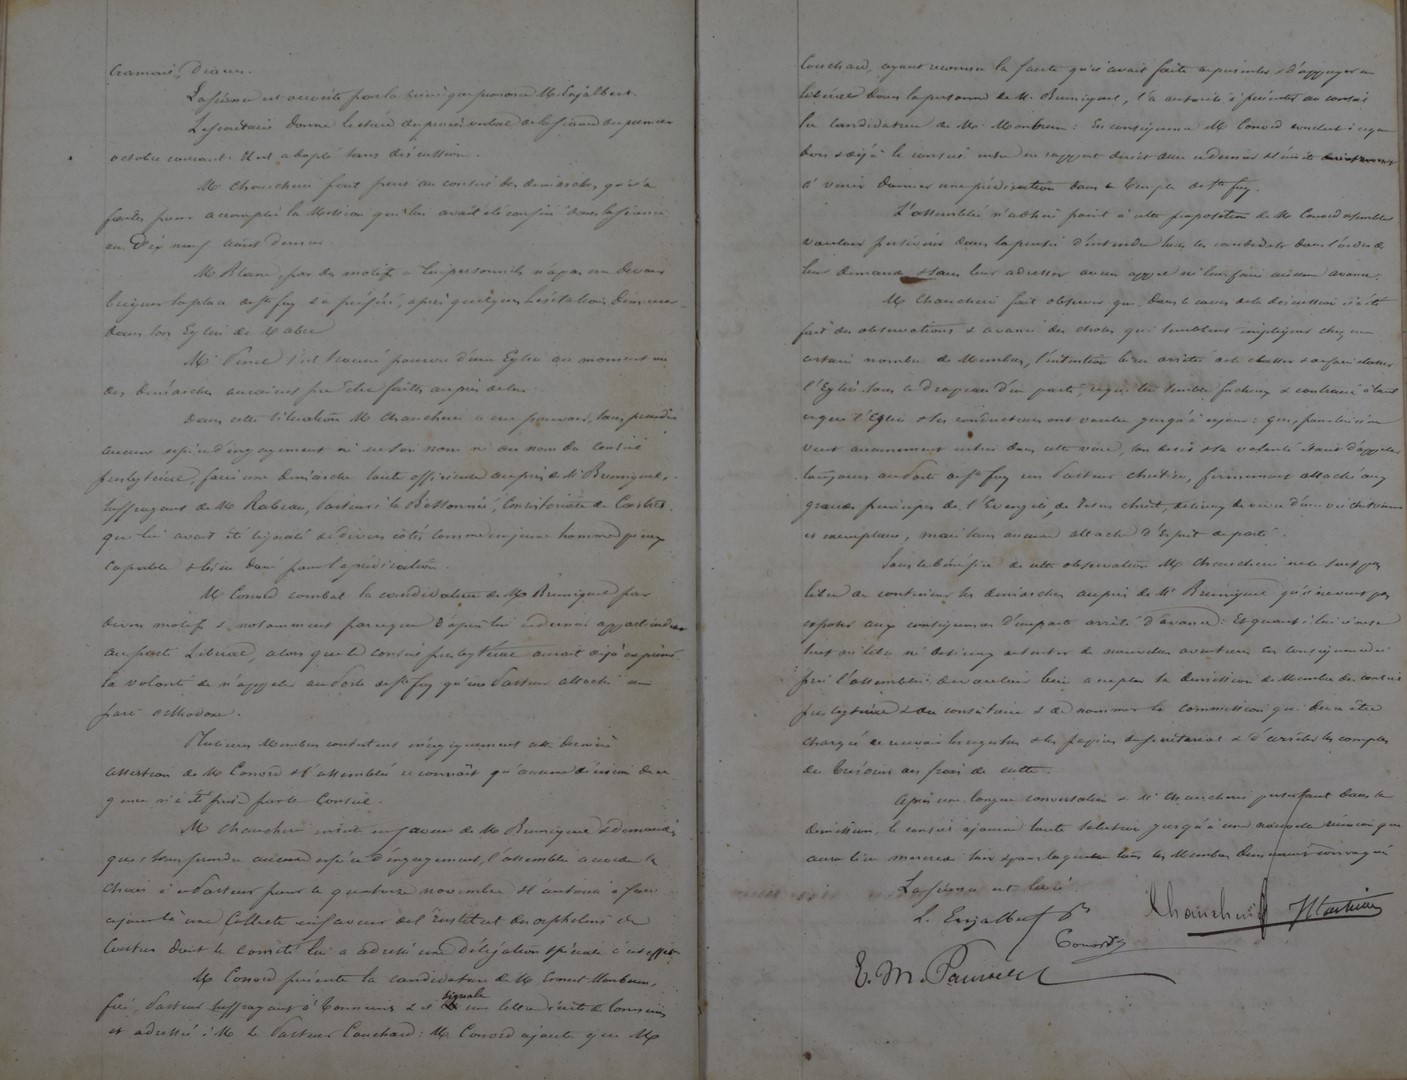 La séance est ouverte par la prière que prononce M. Enjalbert.
Le secrétaire donne lecture du procès verbal de la séance du premier
octobre courant. Il est adopté sans discussion.
M. Chaucherie fait part au conseil des démarches qu'il a
faites pour accomplir la Mission qui lui avait été confiée dans la séance
du Dix neuf août dernier.
M. Blanc, par des motifs à lui personnels n'a pas cru devoir
briguer la place de Ste foy & a préféré, après quelques hésitations, demeurer
dans son Eglise de
M. s'est trouvé pourvu d'une Eglise au moment où
des démarches auraient pu être faites auprès de lui.
Dans cette situation M. Chaucherie a cru pouvoir, sans prendre
aucune espèce d'engagement ni en son nom ni au nom du Conseil
presbytéral, faire une démarche toute officieuse auprès de M. Bruniquel,
suffragant de M. Rabeau, Pasteur à la Bessonnié, Consistoriale de Castres
qui lui avait été signalé de divers côtés comme un jeune homme pieux
capable & bien doué pour la prédication.
M. Conord combat la candidature de M. Bruniquel par
divers motifs & notamment parceque d'après lui ce dernier appartiendrait
au parti Libéral, alors que le conseil presbytéral aurait déjà exprimé
la volonté de n'appeler au Poste de Ste foy qu'un Pasteur attaché au
parti orthodoxe.
Plusieurs Membres contestent énergiquement cette dernière
assertion de M. Conord & l'assemblée reconnaît qu'aucune décision de ce
genre n'a été prise par le Conseil.
M. Chaucherie insiste en faveur de M. Bruniquel & demande
que, sans prendre aucune espèce d'engagement, l'assemblée accorde la
chaire à ce Pasteur pour le quatorze novembre & l'autorise à faire
ce jour là une Collecte en faveur de l'institut des orphelins de
Castres dont le comité lui a adressé une délégation spéciale à cet effet.
M. Conord présente la candidature de M. Ernest Monbrun,
fils, Pasteur suffragant à Tonneins & il signale une lettre écrite de Tonneins
et adressée à M. le Pasteur Couchard : M. Conord ajoute que M.
Couchard, ayant reconnu la faute qu'il avait faite de présenter & d'appuyer un
libéral dans la personne de M. Bruniquel, l'a autorisé à présenter au conseil
la candidature de M. Monbrun : En conséquence M. Conord conclut à ce que
le conseil entre en rapport direct avec ce dernier & l'invite
à venir donner une prédication dans le Temple de Ste foy.
L'assemblée n'adhère point à cette proposition de M. Conord & semble
vouloir persévérer dans la pensée d'entendre tous les candidats dans l'ordre de
leur demande & sans leur adresser aucun appel ni leur faire aucune avance.
M. Chaucherie fait observer que, dans le cours de la discussion il a été
fait des observations & avancé des choses qui semblent impliquer chez un
certain nombre de Membres, l'intention bien arrêtée de classer & de faire classer
l'Eglise sous le drapeau d'un parti, ce qui lui semble fâcheux & contraire à tout
ce que l'Eglise & ses conducteurs ont voulu jusqu'à ce jour : Que, pour lui il ne
veut aucunement entrer dans cette voie, son désir & sa volonté étant d'appeler
toujours au Poste de Ste foy un Pasteur chrétien, fermement attaché aux
grands principes de l'Evangile de Jésus Christ, désireux de vivre d'une vie chrétienne
et exemplaire, mais sans aucune attache d'Esprit de parti.
Sous le bénéfice de cette observation M. Chaucherie ne se sent pas
libre de continuer les démarches auprès de M. Bruniquel qu'il ne veut pas
exposer aux conséquences d'un parti arrêté d'avance : Et quant à lui il ne se
sent ni libre ni désireux de tenter de nouvelles aventures. En conséquence il
prie l'assemblée de vouloir bien accepter sa démission de Membre du conseil
presbytéral & du consistoire & de nommer la commission qui devra être
chargée de recevoir les registres & les papiers du secrétariat & d'arrêter les comptes
du Trésorier des frais de culte.
Après une longue conversation & M. Chaucherie persistant dans sa
démission, le conseil ajourne toute solution jusqu'à une nouvelle réunion qui
aura lieu mercredi soir & pour laquelle tous les Membres demeurent convoqués
La séance est levée.
L. Enjalbert Pr
Chaucherie
Conord